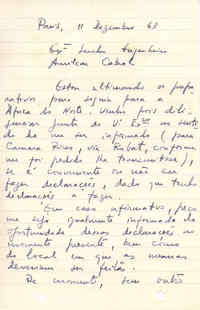 Paris, 11 Dezembro 63
Exº Senhor Engenheiro
Amilcar Cabral
Estou ultimando os prepa
rativos para seguir para a
África do Norte. Venho pois dili
genciar junto de V. Exª no sentido
de me ser informado (para
via Rabat, conforme
me foi pedido lhe transmitisse),
se é conveniente ou não eu
fazer declarações, dado que tenho
declarações a fazer.
Em caso afirmativo, peço
me seja igualmente informado da
oportunidade dessas declarações no
momento presente, bem como
do local em que as mesmas
deveriam ser feitas.
De momento, sem outro